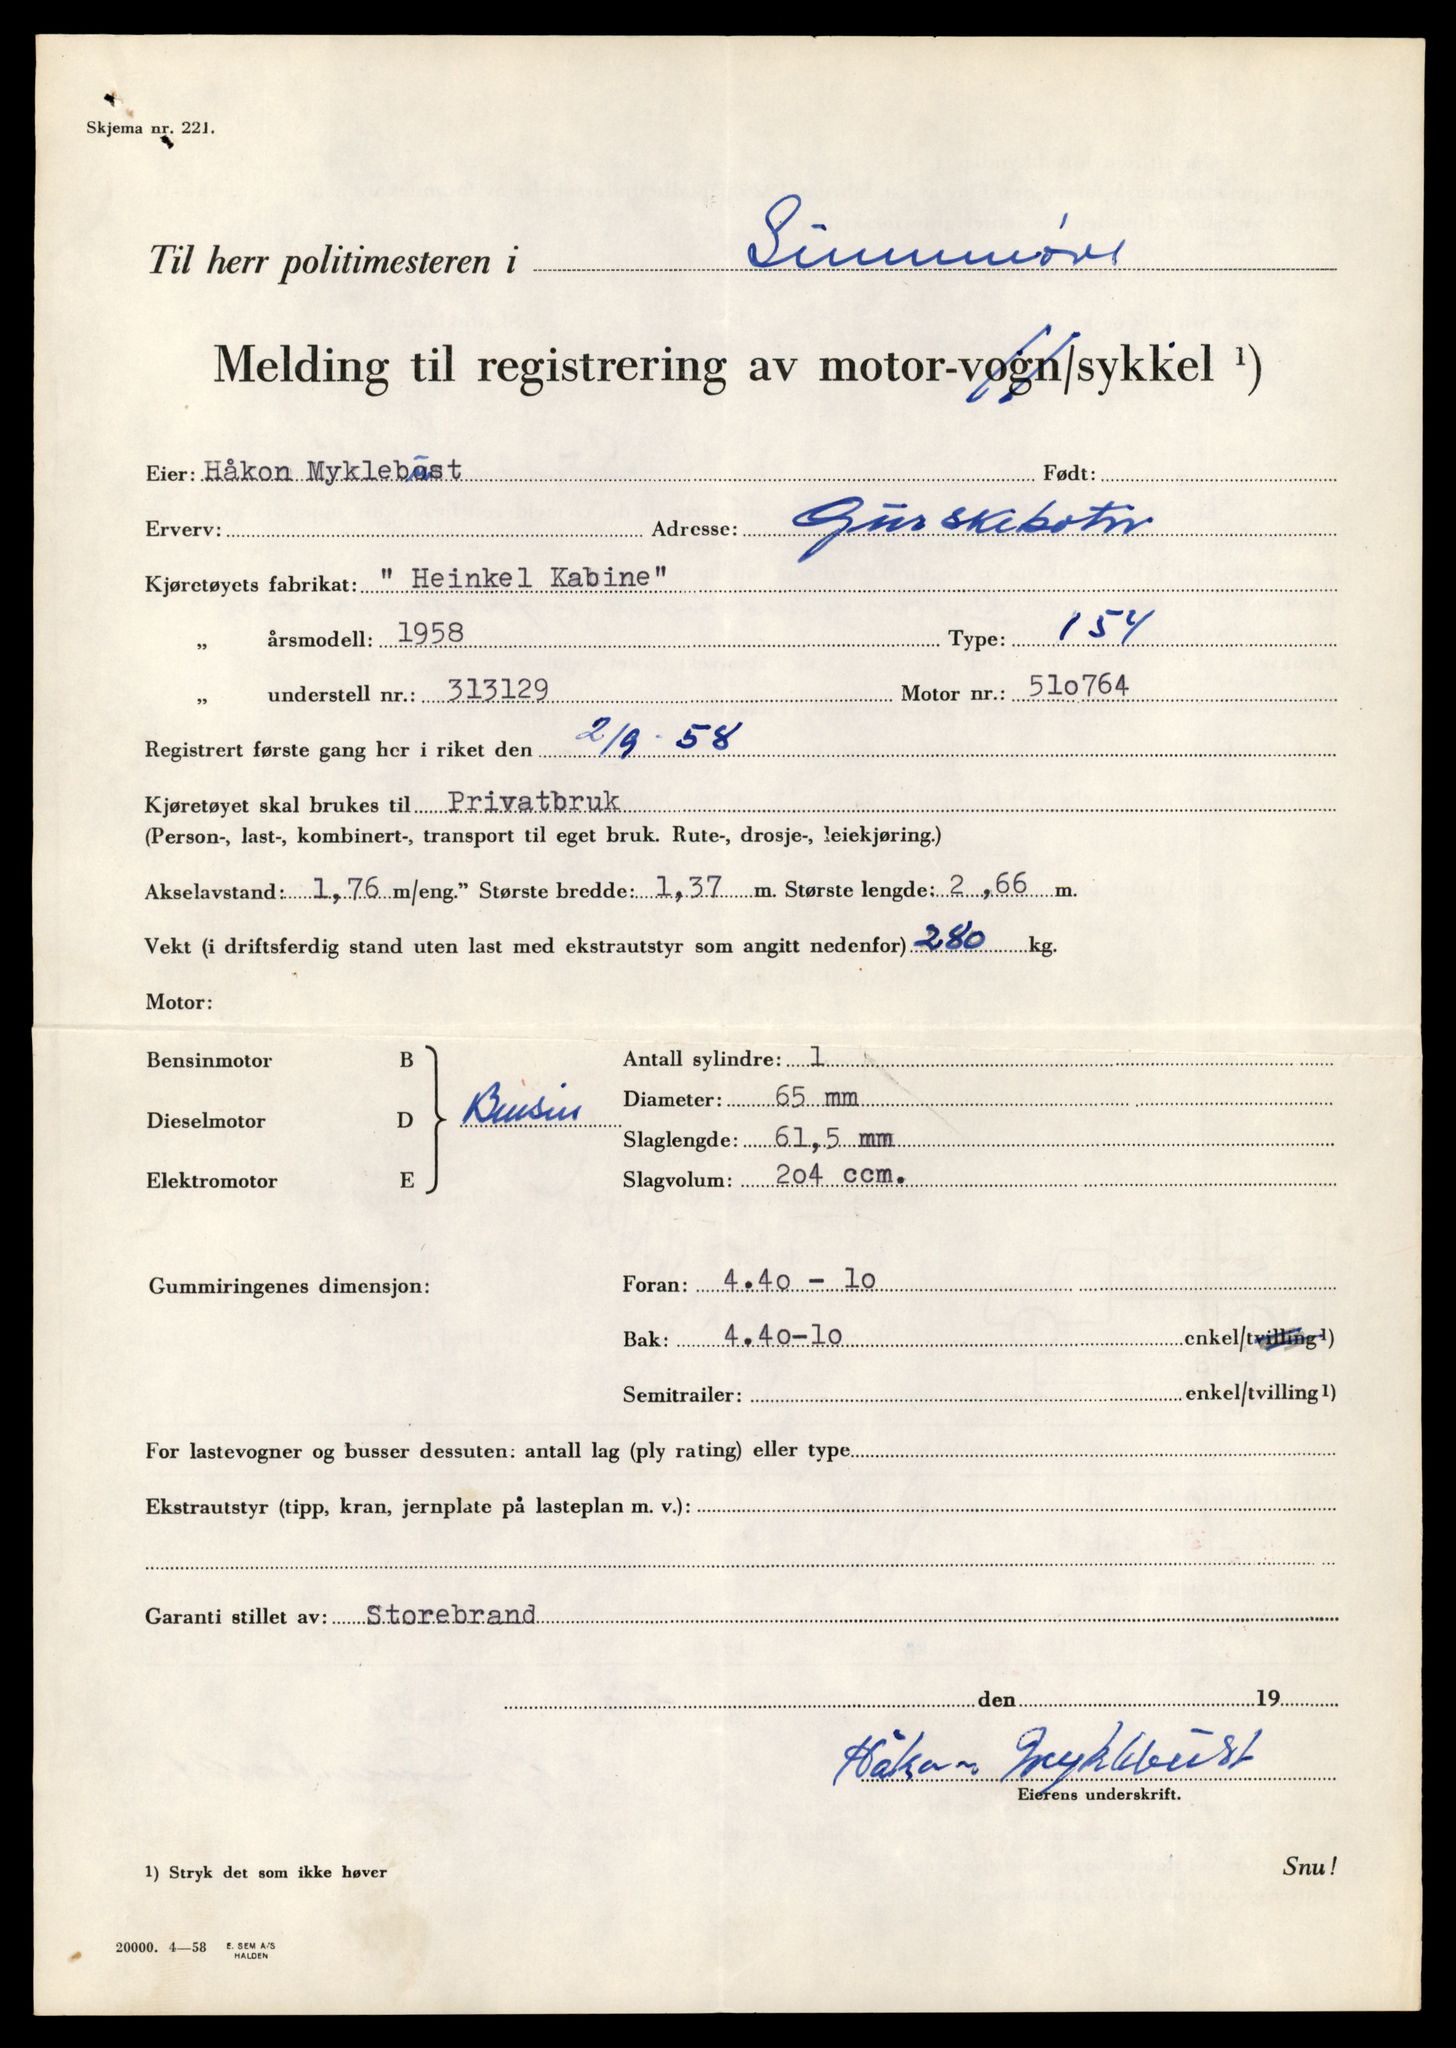 Skjema nr. 221.
Til herr politimesteren i Sunnmøre
Melding til registrering av motor-vogn/sykkel ¹)
Eier: Håkon Myklebust Født:
Erverv: Adresse: Gurskebotn
Kjøretøyets fabrikat: " Heinkel Kabine"
„ årsmodell: 1958 Type: 154
„ understell nr.: 313129 Motor nr.: 510764
Registrert første gang her i riket den 2/9-58
Kjøretøyet skal brukes til Privatbruk
(Person-, last-, kombinert-, transport til eget bruk. Rute-, drosje-, leiekjøring.)
Akselavstand: 1,76 m/eng.” Største bredde: 1,37 m. Største lengde: 2 ,66 m.
Vekt (i driftsferdig stand uten last med ekstrautstyr som angitt nedenfor) 280 kg.
Motor:
Bensinmotor B
Dieselmotor D Bensin
Elektromotor E
Antall sylindre: 1
Diameter: 65 mm
Slaglengde: 61,5 mm
Slagvolum: 204 ccm.
Gummiringenes dimensjon: Foran: 4.40 - 10
Bak: 4.40-10 enkel/tvilling¹)
Semitrailer: enkel/tvilling¹)
For lastevogner og busser dessuten: antall lag (ply rating) eller type
Ekstrautstyr (tipp, kran, jernplate på lasteplan m. v.):
Garanti stillet av: Storebrand
den 19
Håkon Myklebust
Eierens underskrift.
1) Stryk det som ikke høver
Snu!
20000. 4—58 E. SEM A/S
HALDEN